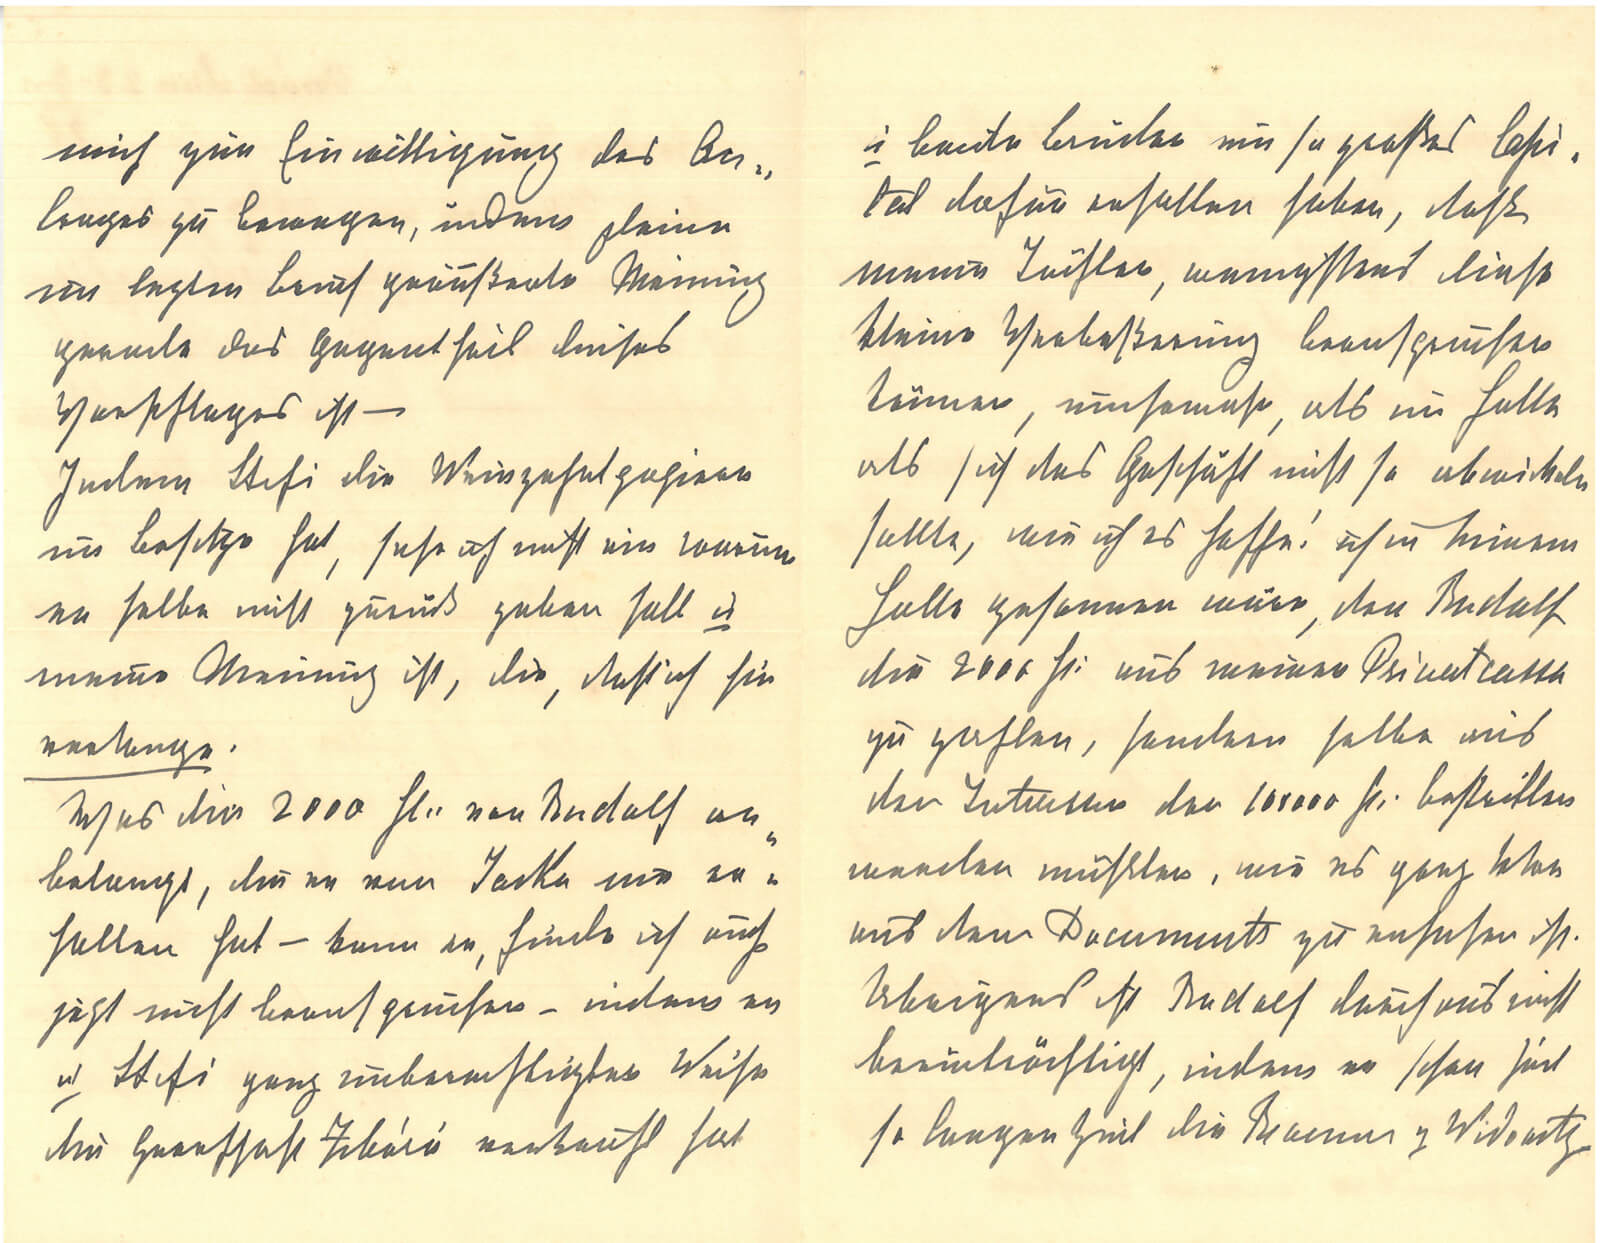 mich zur Einwilligung des An„
trages zu bewegen, indem meine
im letzten Brief geäußerte Meinung
gerade das Gegentheil dieses
Vorschlages ist —
Indem Stefi die
im Besitze hat, sehe ich nicht ein warum
er selbe nicht zurück geben soll u
meine Meinung ist, die, daß ich sie
verlange.
Was die 2000 fl: von Rudolf an„
belangt, die er von Jaska nie er„
halten hat — kann er, finde ich auch
jetzt nicht beanspruchen — indem er
u Stefi ganz unberechtigter Weise
die Herrschaft Zboró verkauft hat
u beide Brüder ein so großes Capi„
tal dafür erhalten haben, daß
meine Töchter, wenigstens diese
kleine Verbeßerung beanspruchen
können, umsomehr, als im Falle
als sich das Geschäft nicht so abwickeln
sollte, wie ich es hoffe! ich in keinem
Falle gesonnen wäre, den Rudolf
die 2000 fl: aus meiner Privatcassa
zu zahlen, sondern selbe aus
den Interessen der 100000 fl: bestritten
werden müßten, wie es ganz klar
aus dem Documente zu ersehen ist.
Übrigens ist Rudolf durchaus nicht
beeinträchtigt, indem er schon seit
so langer Zeit die